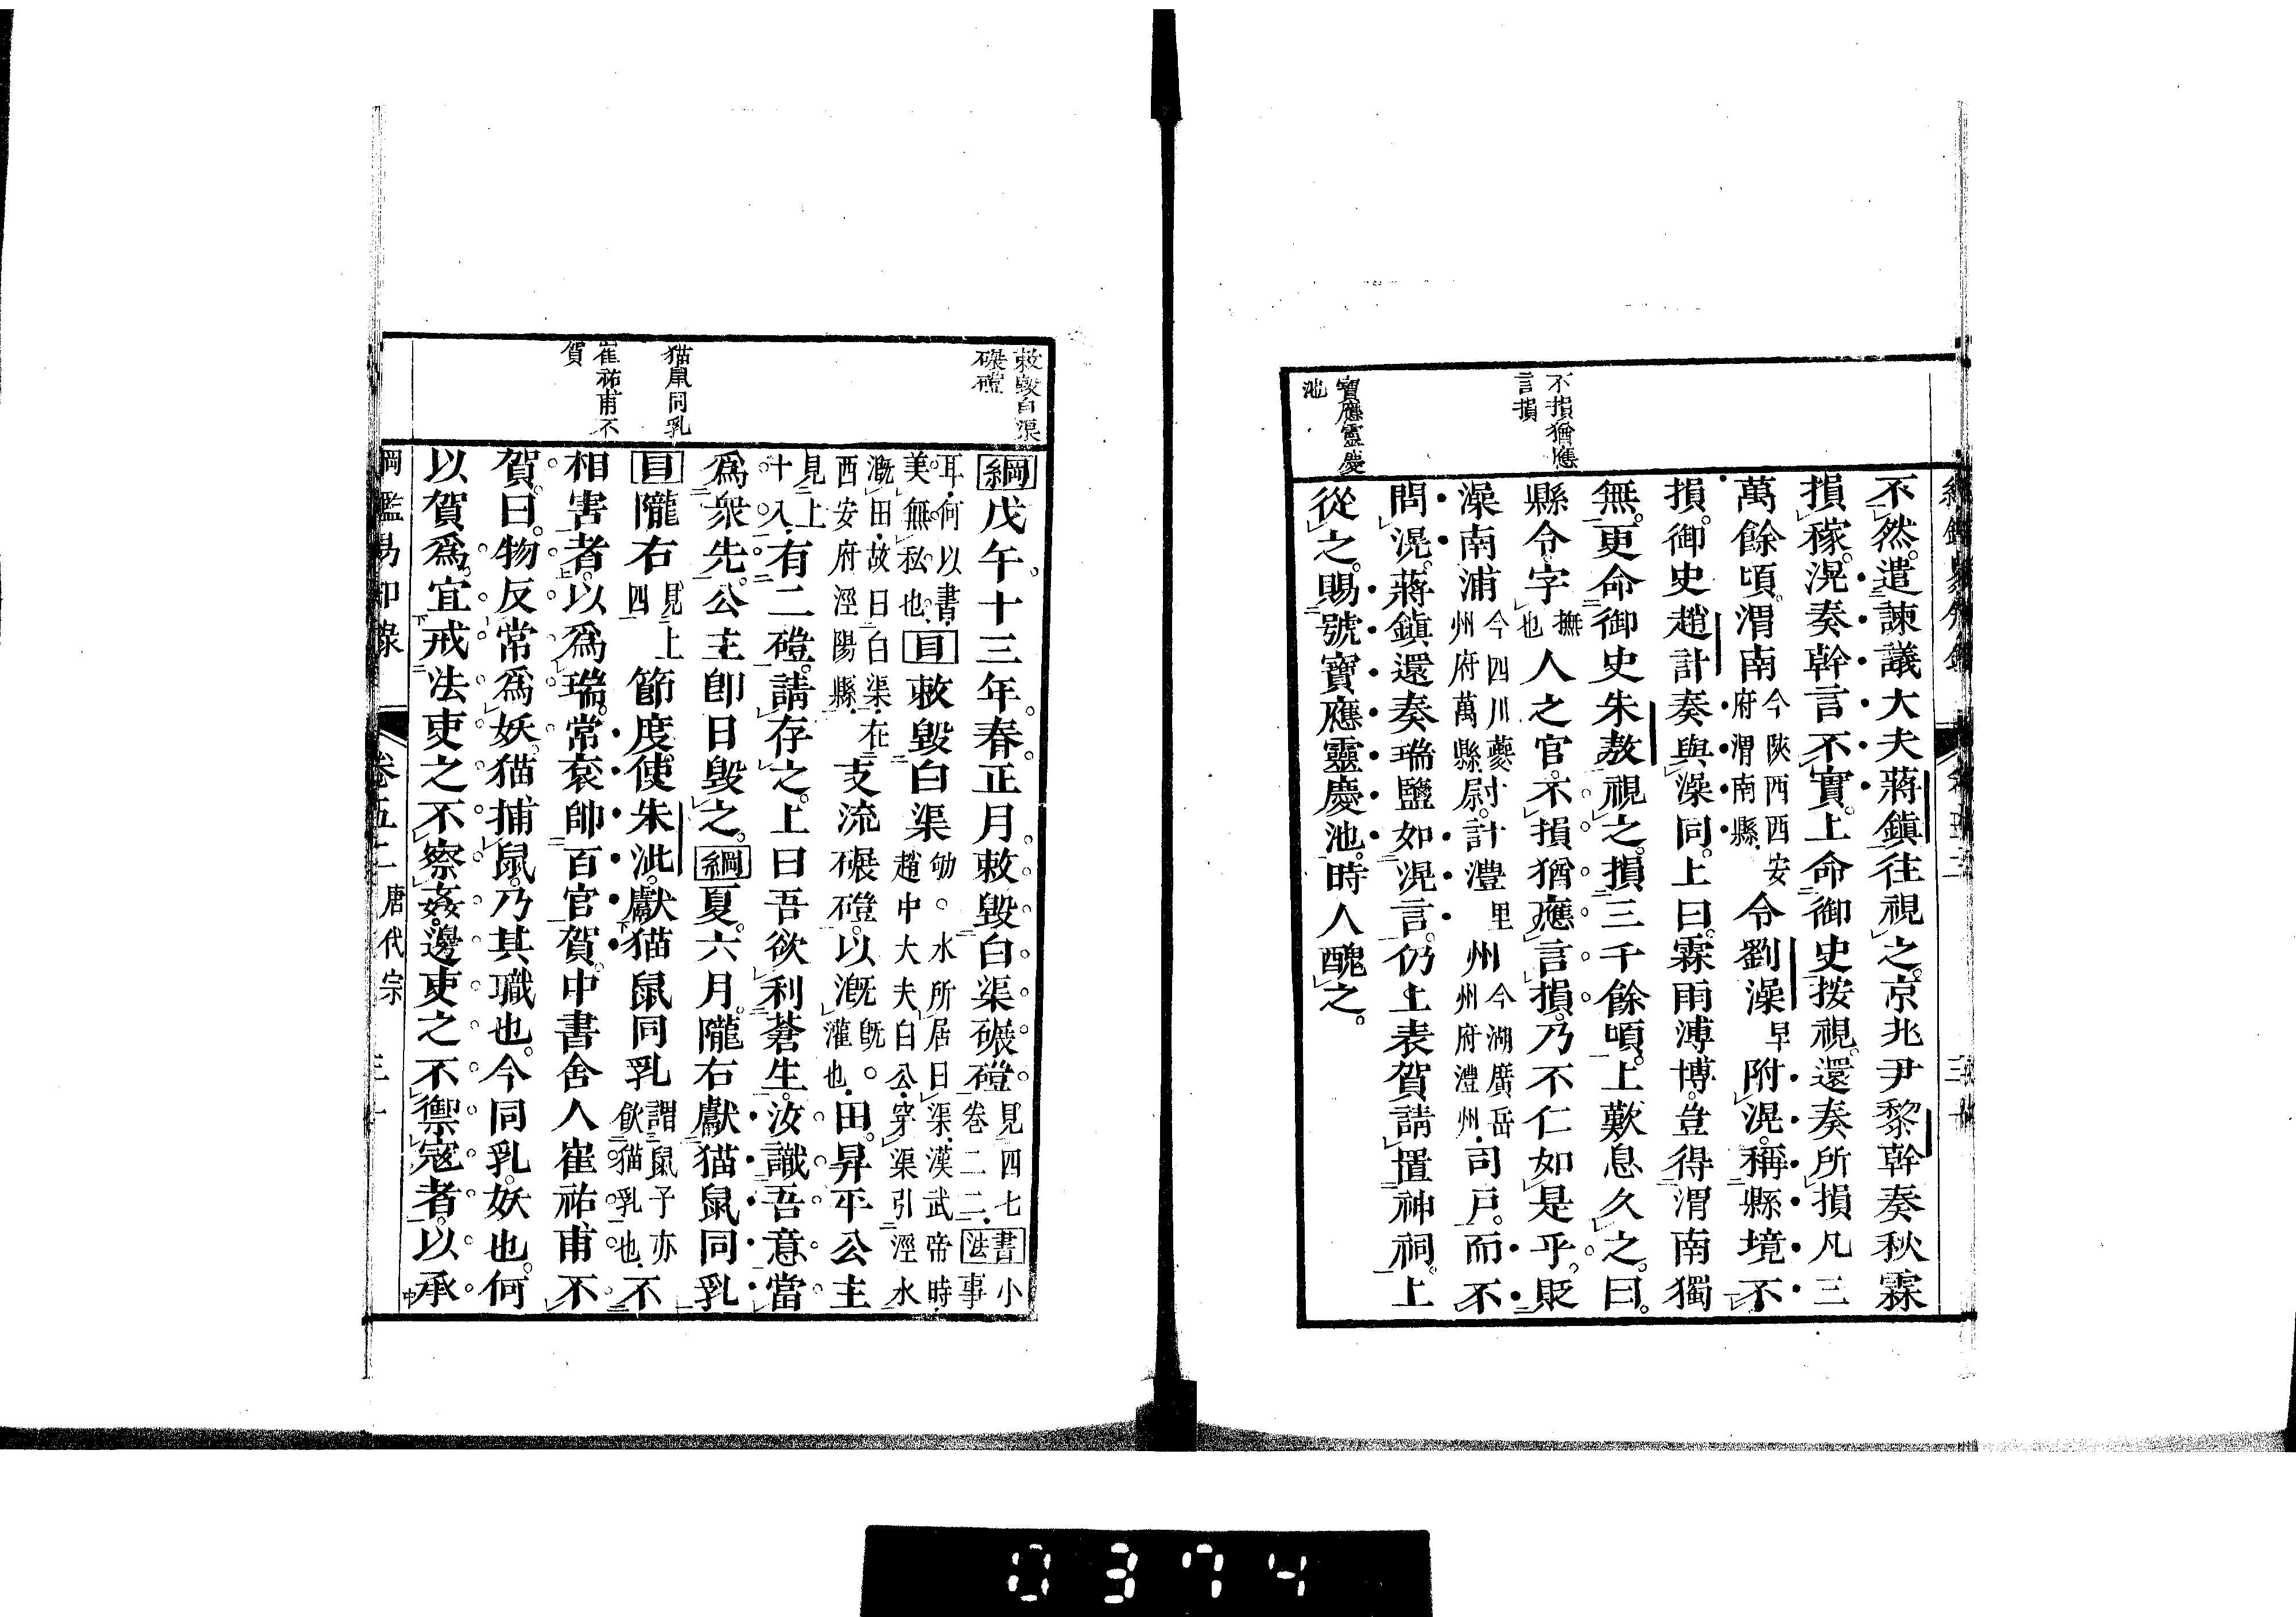 不損猶應
言損
寶應靈慶
池
不然。遣諫議大夫蔣鎮往視之。京兆尹黎幹奏秋霖
損稼。滉奏幹言不實。上命御史按視。還奏所損凡三
萬餘頃。渭南今陝西西安府渭南縣。令劉澡早附滉。稱縣境不
損。御史趙計奏與澡同。上曰。霖雨溥博。豈得渭南獨
無。更命御史朱敖視之。損三千餘頃。上歎息久之。曰。
縣令字撫也人之官。不損猶應言損。乃不仁如是乎。貶
澡南浦今四川夔州府萬縣。尉。計澧里州今湖廣岳州府澧州。司戶。而不
問滉。蔣鎮還奏瑞鹽如滉言。仍上表賀請置神祠。上
從之。賜號寶應靈慶池。時人醜之。
敕毀白渠
碾磑
猫鼠同乳
崔祐甫不
賀
綱戊午。十三年。春。正月。敕毀白渠碾磑。見四七卷二二。書法小事
耳。何以書。美無私也。目敕毀白渠劬。水所居曰渠。漢武帝時。趙中大夫白公。穿渠引涇水
漑田。故曰白渠。在西安府涇陽縣。支流碾磑。以漑旣。灌也。田。昇平公主
見上十八。有二磑。請存之。上曰吾欲利蒼生。汝識吾意。當
爲衆先。公主卽日毀之。綱夏。六月。隴右獻猫鼠同乳
目隴右見上四節度使朱泚。獻猫鼠同乳謂鼠子亦飮猫乳也。不
相害者。以爲瑞。常袞帥百官賀。中書舍人崔祐甫不
賀。曰。物反常爲妖。猫捕鼠。乃其職也。今同乳。妖也。何
以賀爲。宜戒法吏之不察姦。邊吏之不禦寇者。以承
綱鑑易知錄 卷五二 唐代宗
0374